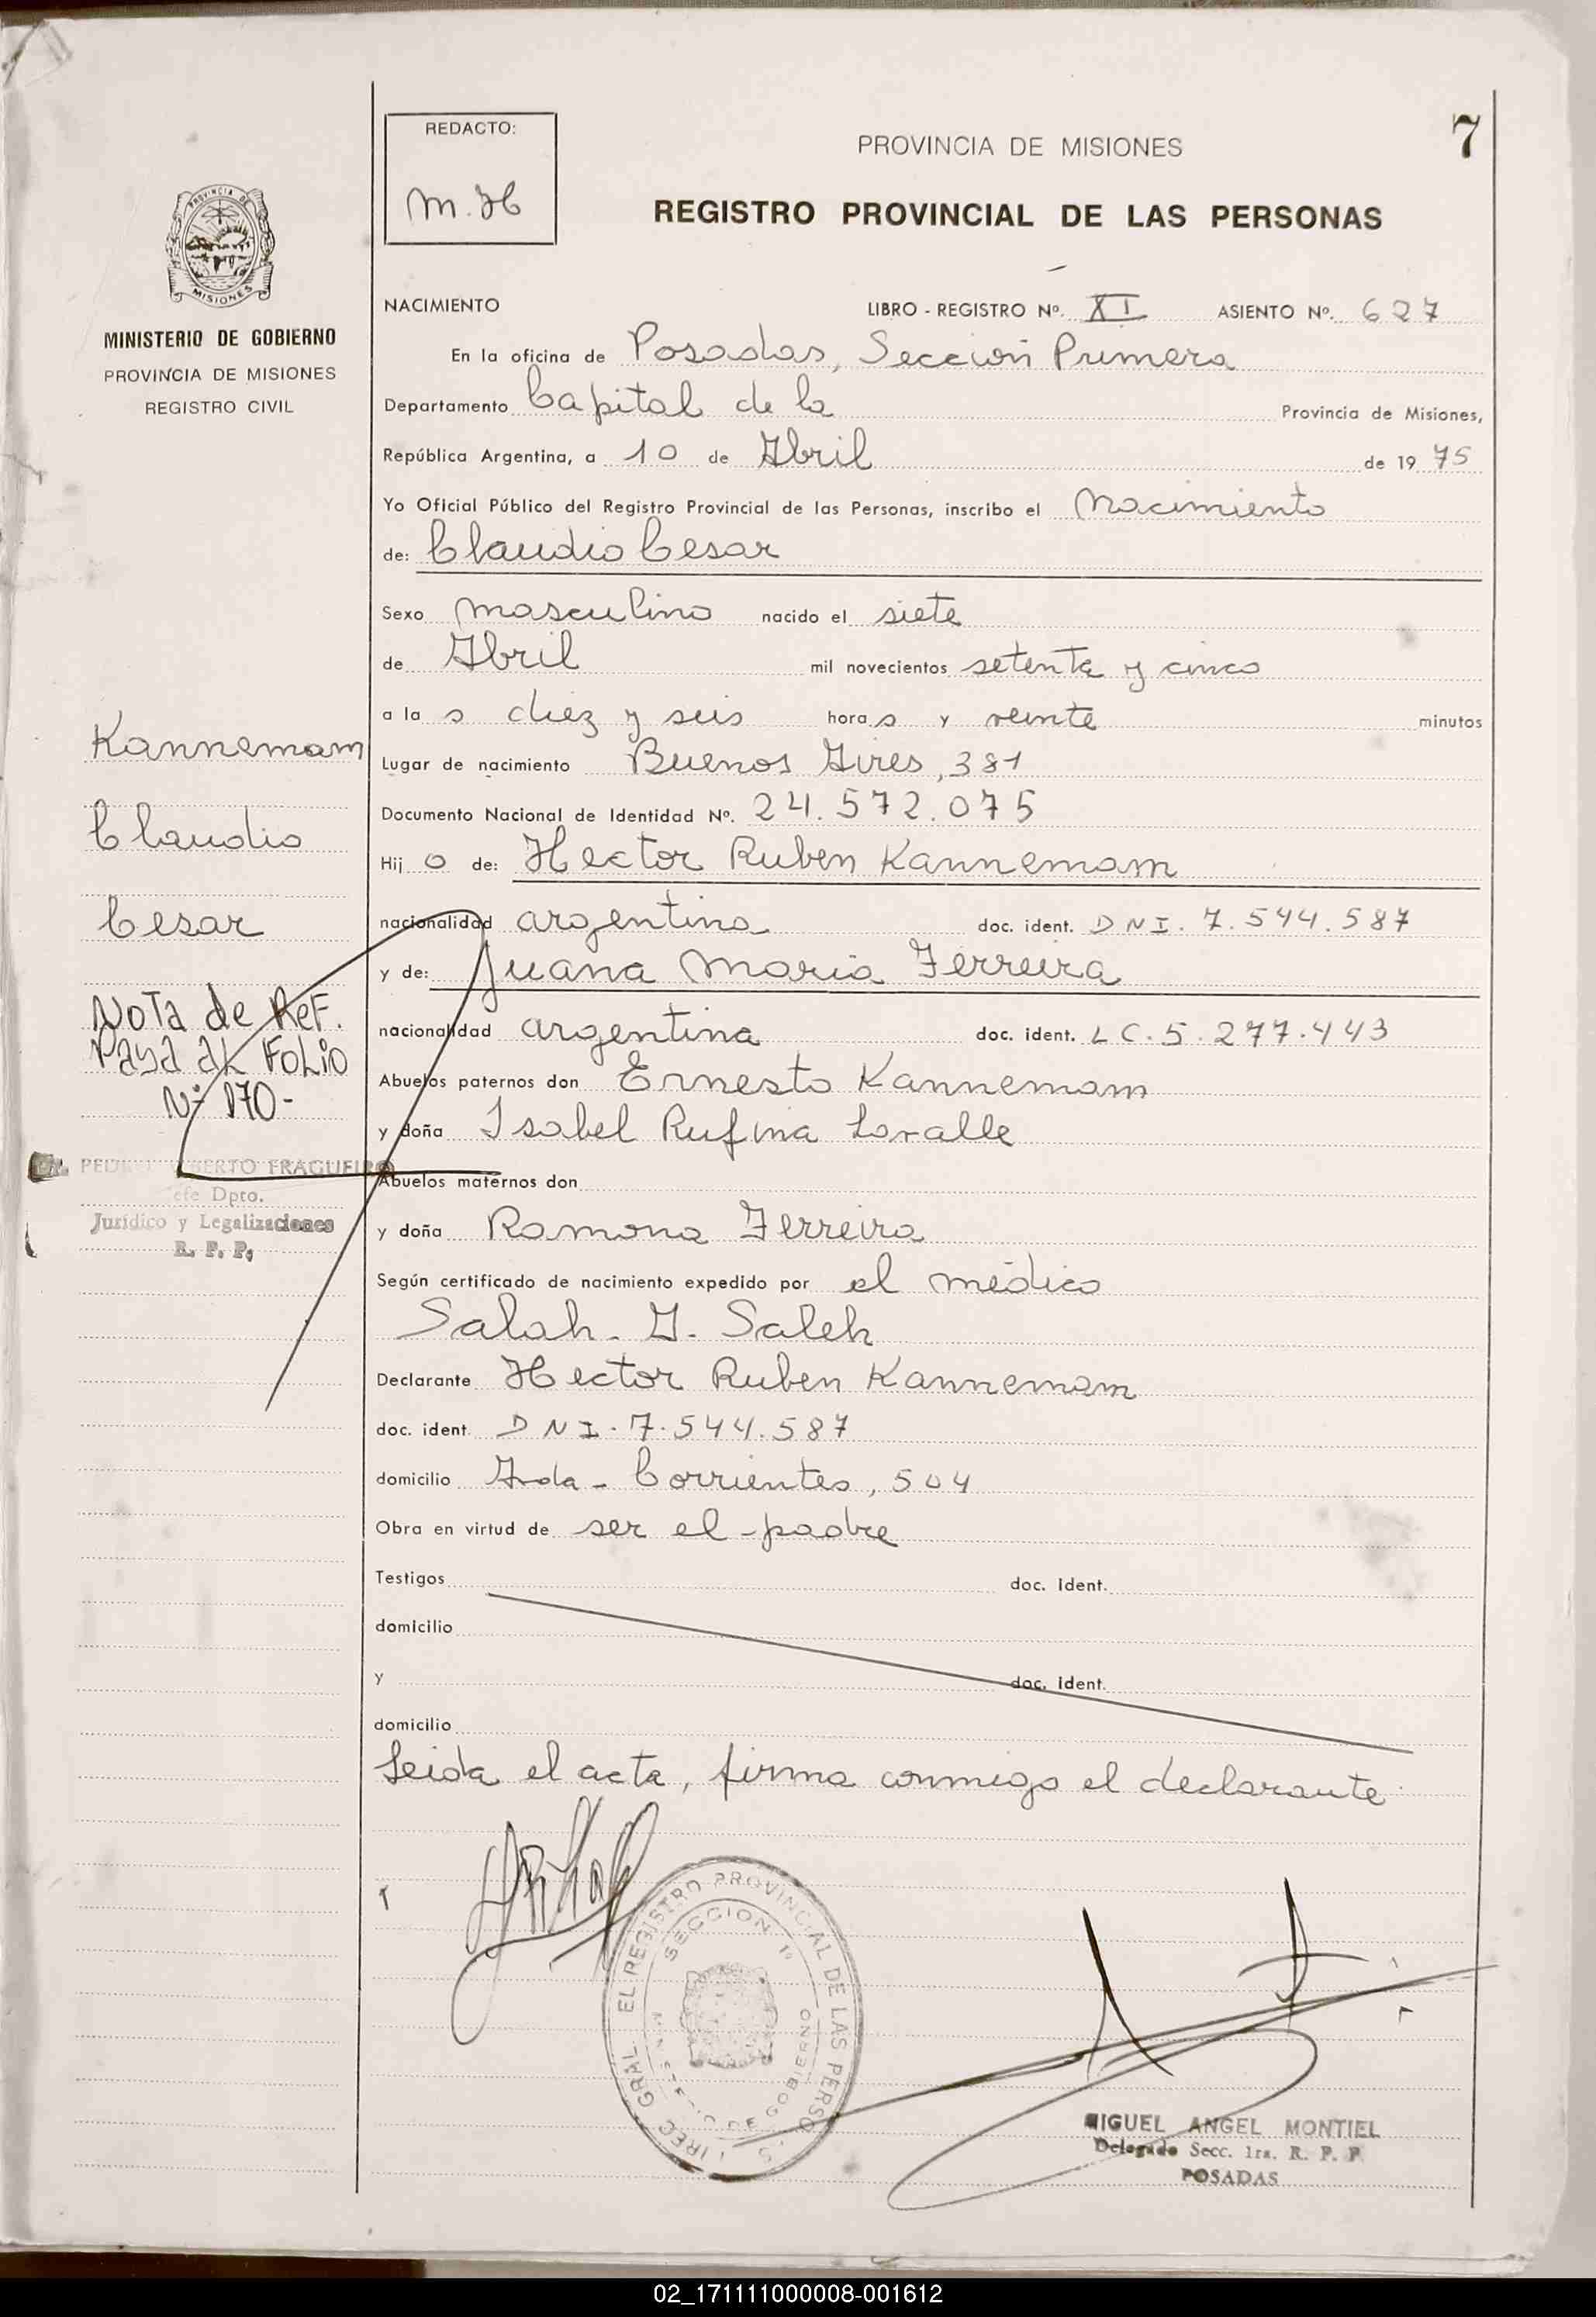 7
REDACTO:
M.H
PROVINCIA DE MISIONES
REGISTRO PROVINCIAL DE LAS PERSONAS
PROVINCIA DE MISIONES
MINISTERIO DE GOBIERNO
PROVINCIA DE MISIONES
REGISTRO CIVIL
NACIMIENTO LIBRO - REGISTRO Nº. XI ASIENTO Nº. 627
En la oficina de Posadas, Sección Primera
Departamento Capital de la Provincia de Misiones,
República Argentina, a 10 de Abril de 19 75
Yo Oficial Público del Registro Provincial de las Personas, inscribo el Nacimiento
de: Claudio Cesar
Sexo masculino nacido el siete
de Abril mil novecientos setenta y cinco
a la s diez y seis hora s y veinte minutos
Lugar de nacimiento Buenos Aires, 381
Documento Nacional de Identidad Nº. 24.572.075
Hij o de: Hector Ruben Kannemam
nacionalidad argentina doc. ident. DNI. 7.544.587
y de: Juana Maria Ferreira
nacionalidad argentina doc. ident. LC. 5.277.443
Abuelos paternos don Ernesto Kannemam
y doña Isabel Rufina Loralle
Abuelos maternos don
y doña Ramona Ferreira
Según certificado de nacimiento expedido por el médico
Salah. J. Saleh
Declarante Hector Ruben Kannemam
doc. ident. DNI. 7.544.587
domicilio Avda - Corrientes, 504
Obra en virtud de ser el padre
Testigos doc. ident.
domicilio
y doc. ident.
domicilio
Leida el acta, firma conmigo el declarante
Kannemam
Claudio
Cesar
Nota de Ref.
Pasa al Folio
Nº 170-
FRAGUEIRO
Dpto.
Jurídico y Legalizaciones
R. P. P.
EL REGISTRO PROVINCIAL DE LAS PERSO
SECCION 1ª
DE GOBIERNO
MIGUEL ANGEL MONTIEL
Delegado Secc. 1ra. R. P. P
POSADAS
02_171111000008-001612